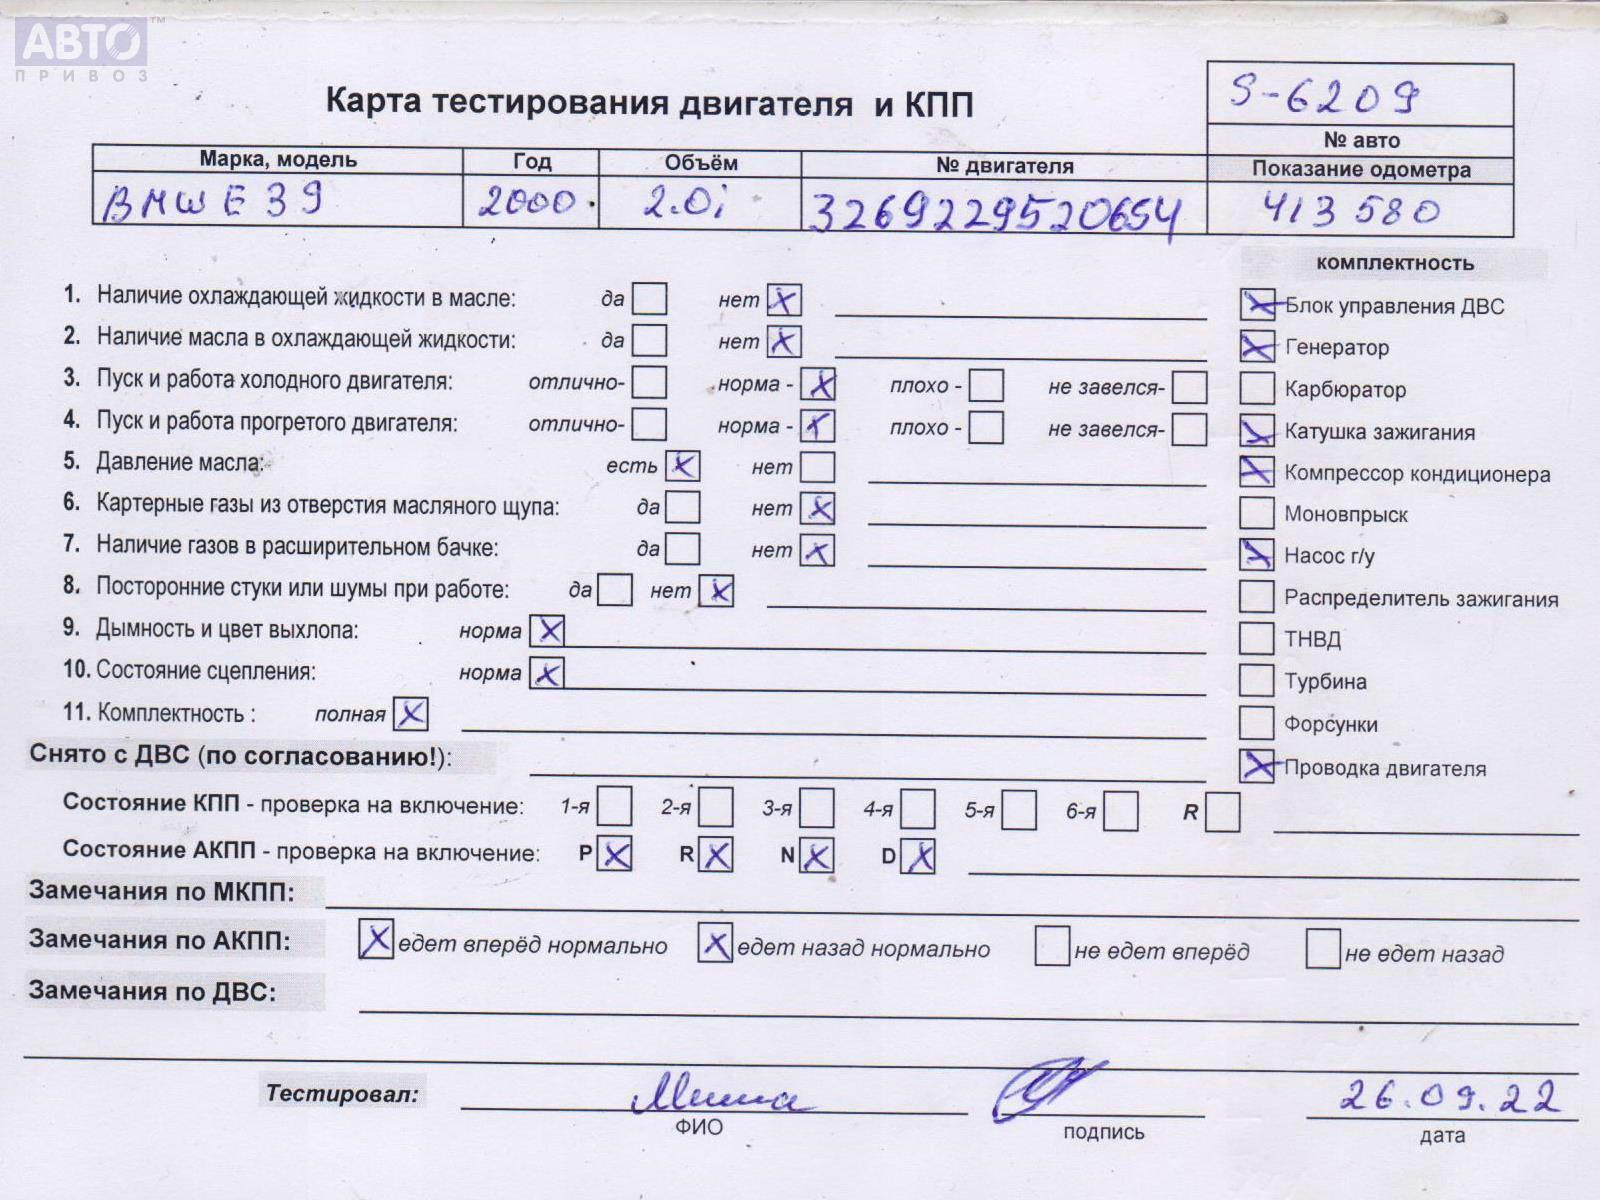 АВТО™
ПРИВОЗ
Карта тестирования двигателя и КПП
S-6209
№ авто
Марка, модель Год Объём № двигателя Показание одометра
BMW E39 2000. 2.0i 3269229520654 413580
комплектность
1. Наличие охлаждающей жидкости в масле: да нет Блок управления ДВС
2. Наличие масла в охлаждающей жидкости: да нет Генератор
3. Пуск и работа холодного двигателя: отлично- норма - плохо - не завелся- Карбюратор
4. Пуск и работа прогретого двигателя: отлично- норма - плохо - не завелся- Катушка зажигания
5. Давление масла: есть нет Компрессор кондиционера
6. Картерные газы из отверстия масляного щупа: да нет Моновпрыск
7. Наличие газов в расширительном бачке: да нет Насос г/у
8. Посторонние стуки или шумы при работе: да нет Распределитель зажигания
9. Дымность и цвет выхлопа: норма ТНВД
10. Состояние сцепления: норма Турбина
11. Комплектность : полная Форсунки
Снято с ДВС (по согласованию!): Проводка двигателя
Состояние КПП - проверка на включение: 1-я 2-я 3-я 4-я 5-я 6-я R
Состояние АКПП - проверка на включение: P R N D
Замечания по МКПП:
Замечания по АКПП: едет вперёд нормально едет назад нормально не едет вперёд не едет назад
Замечания по ДВС:
Тестировал: Миша 26.09.22
ФИО подпись дата